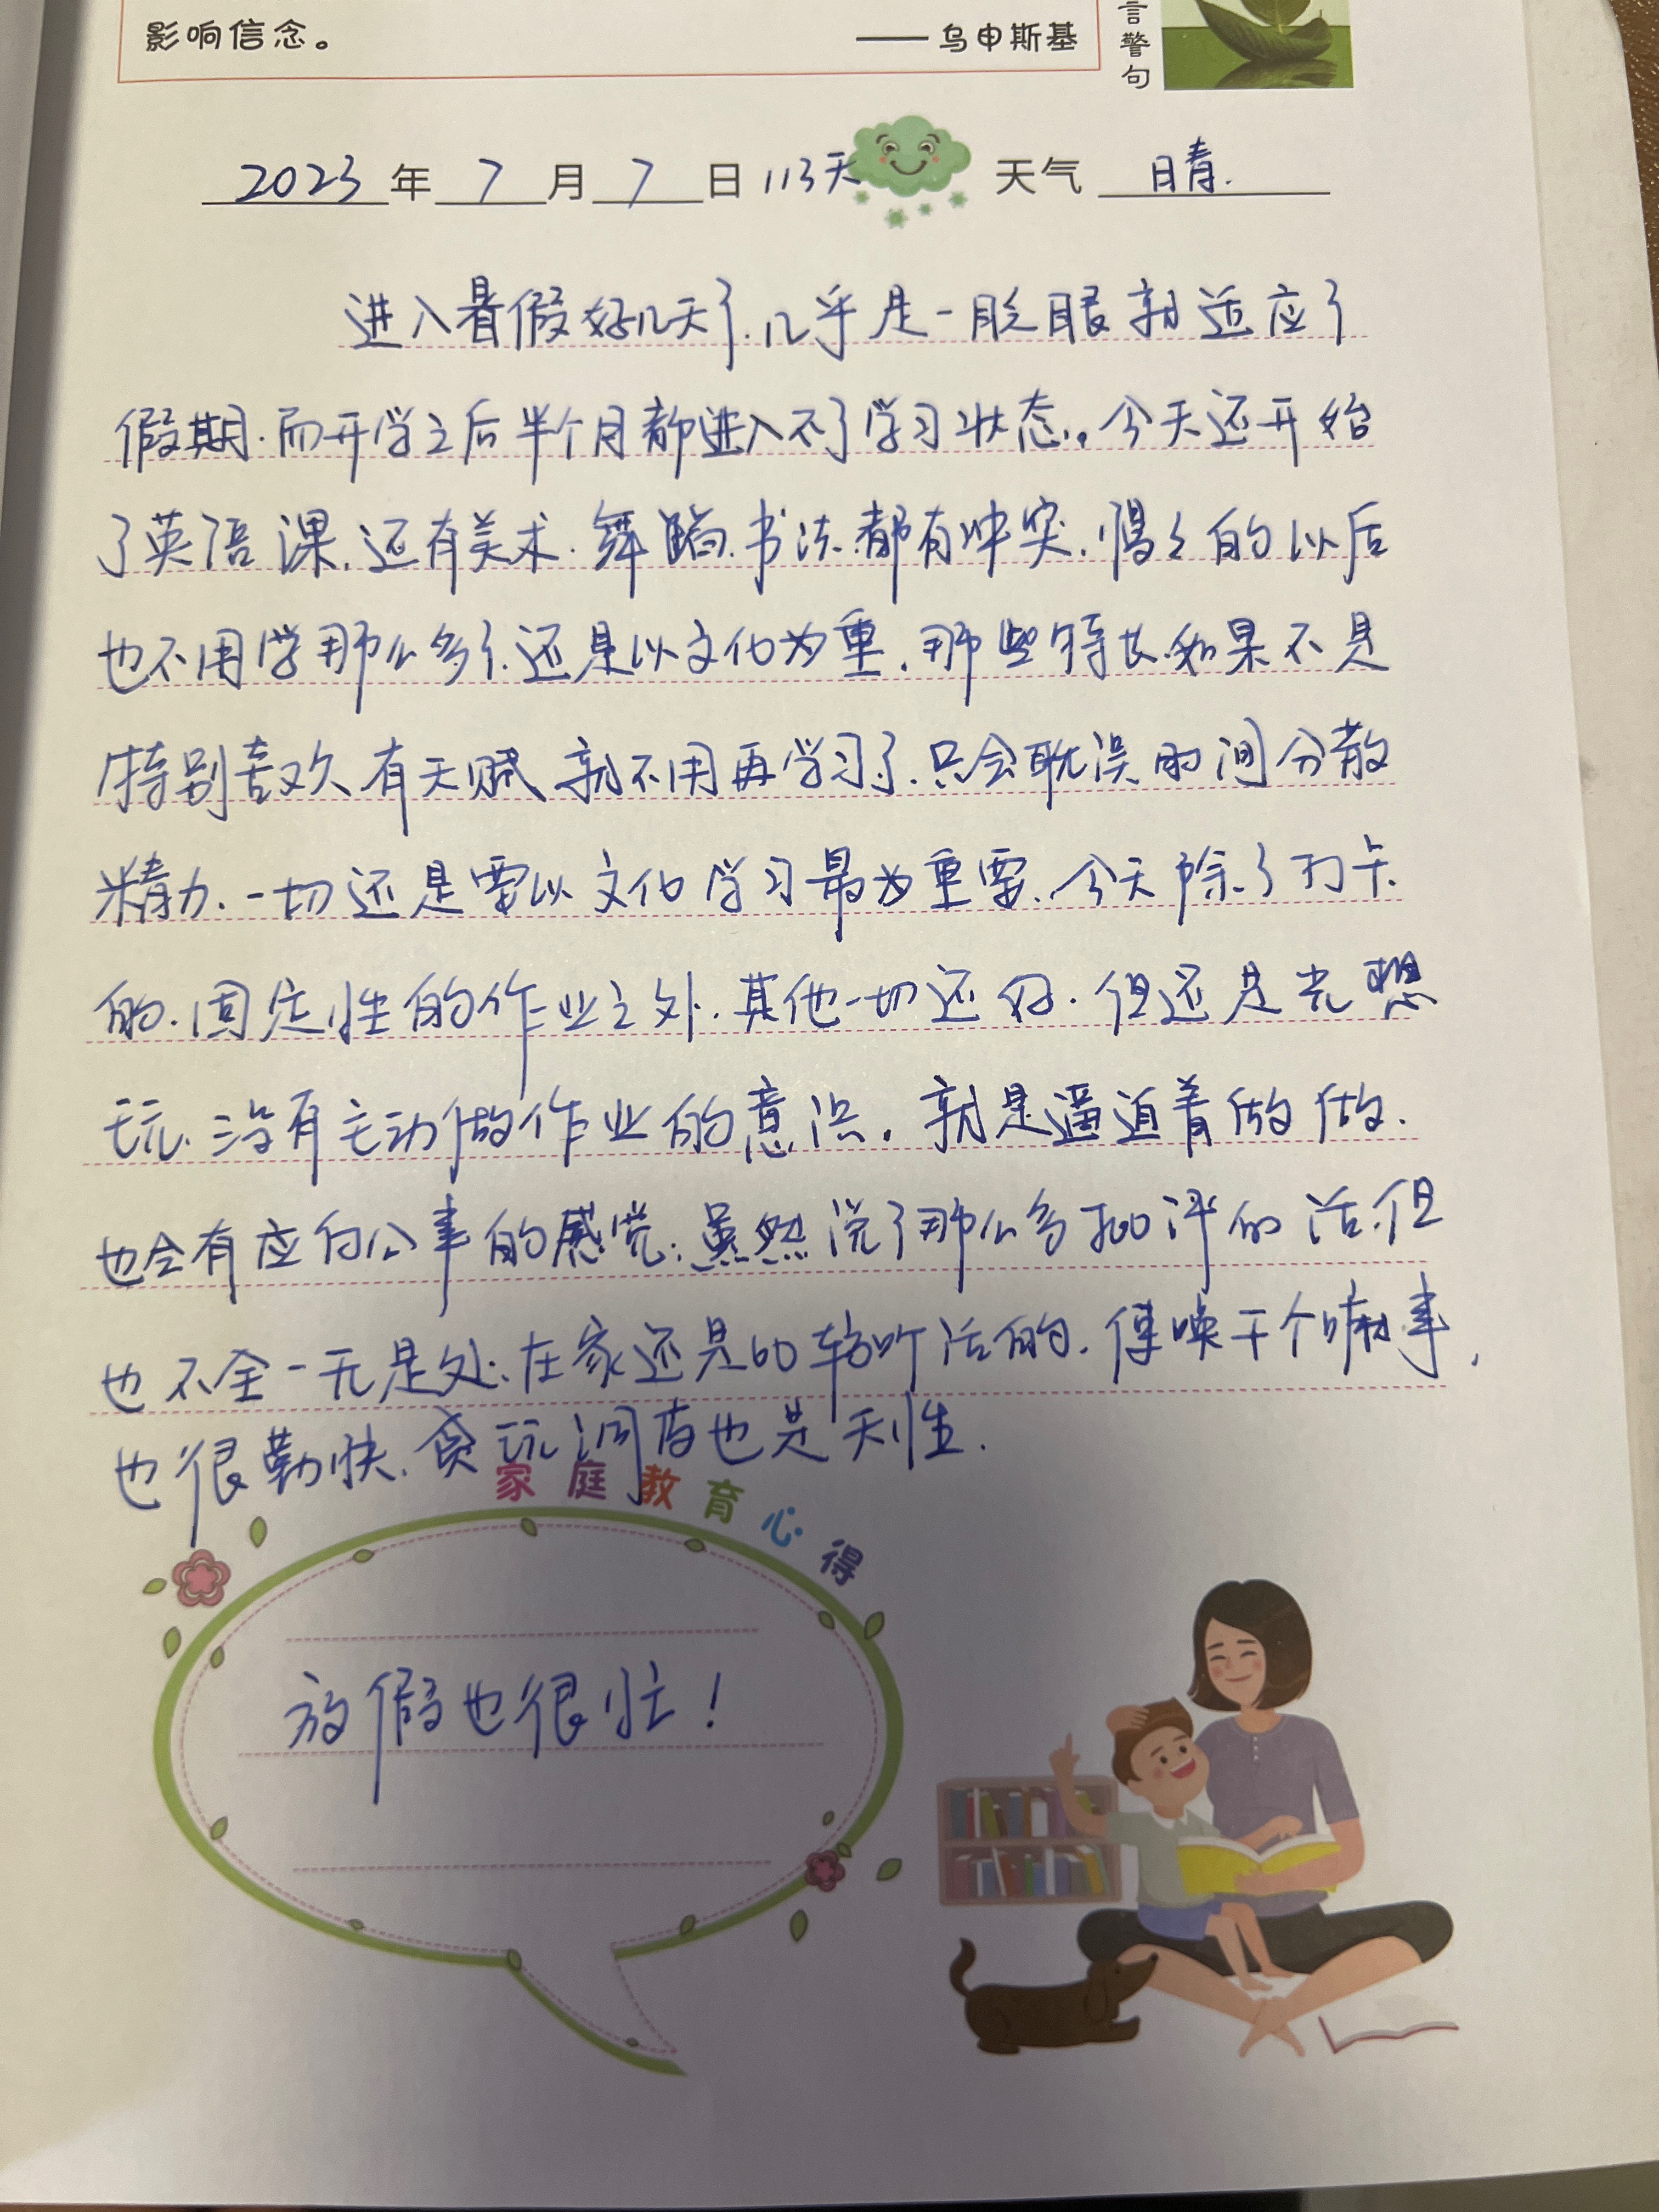 影响信念。
——乌申斯基
言警句
2023年7月7日 113天 天气 晴.
进入暑假好几天了.几乎是一眨眼就适应了
假期.而开学之后半个月都进入不了学习状态.。今天还开始
了英语课.还有美术.舞蹈.书法.都有冲突.慢々的以后
也不用学那么多了.还是以文化为重.那些特长.如果不是
特别喜欢有天赋就不用再学习了.只会耽误时间分散
精力.一切还是要以文化学习最为重要.今天除了打卡
的.固定性的作业之外.其他一切还好.但还是光想
玩.没有主动做作业的意识.就是逼迫着做做.
也会有应付公事的感觉.虽然说了那么多批评的话.但
也不全一无是处.在家还是比较听话的.使唤干个嘛事,
也很勤快.贪玩调皮也是天性.
家庭教育心得
放假也很忙!